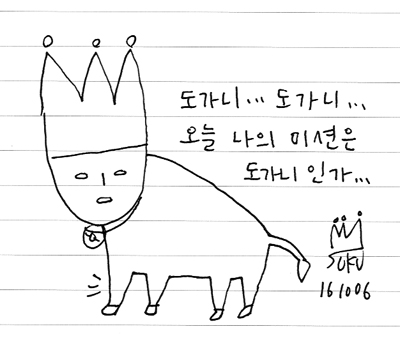 도가니... 도가니...
오늘 나의 미션은
도가니 인가...
SUKU
161006